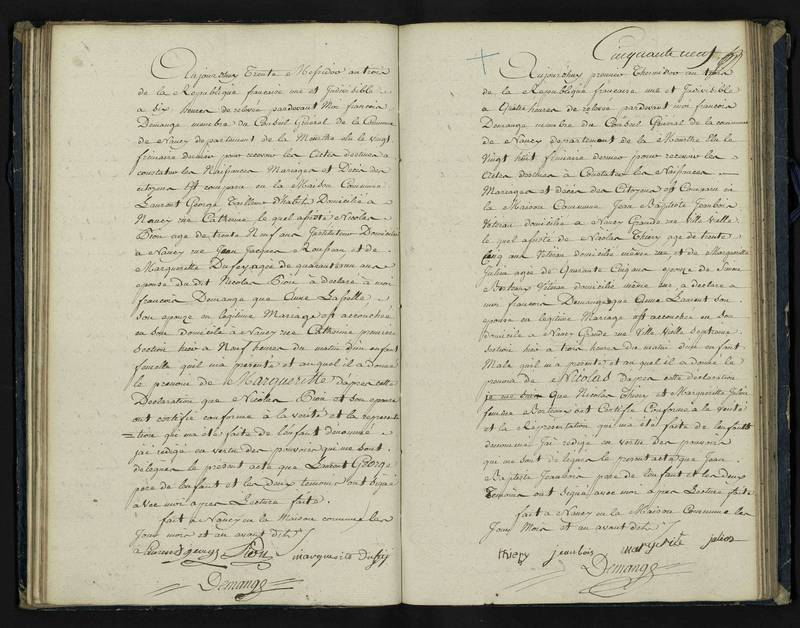 Aujourdhuy Trente Messidor an trois
de la République francaise une et Indivisible
a six heures de relevée pardevant Moi francois
Demange membre du Conseil Général de la Commune
de Nancy departement de la Meurthe élu le vingt
frimaire dernier pour recevoir les Actes destinés a
constater les Naissances Mariages et Décès des
citoyens Est comparu en la Maison Commune
Laurent George Tailleur d'habits Domicilié a
Nancy rue Catherine le quel assisté Nicolas
Pion age de trente Neuf ans Instituteur Domicilié
a Nancy rue Jean Jacques Rousseau et de
Marguerite Dufey agée de quarante un ans
epouse dudit Nicolas Pion a déclaré a moi
francois Demange que Anne
son epouze en legitime Mariage est accouchée
en son domicile a Nancy rue Catherine premiere
section hier a Neuf heures du matin d'un enfant
femelle quil ma présenté et auquel il a donné
le prenom de Marguerite dapres cette
Declaration que Nicolas Pion et son epouse
ont certifié conforme à la verité et la represen
tion qui ma été faite de l'enfant denommé
jai rédigé en vertu des pouvoirs qui me sont
délégués le présent acte que Laurent George
pere de lenfant et les deux temoins ont signé
avec moi apres Lecture faite.
fait a Nancy en la Maison commune les
Jour mois et an avant dits
George Pion marguerite Dufey
Demange
Cinquante neuf 59
Aujourdhuy premier Thermidor an trois
de la République francaise une et Indivisible
a Quatre heures de relevée pardevant moi francois
Demange membre du Conseil Général de la commune
de Nancy departement de la Meurthe Elu le
Vingt huit frimaire dernier pour recevoir les
Actes destinés à Constater les Naissances
Mariages et décès des Citoyens est Comparu en
la Maison Commune Jean Baptiste Jeanbois
Véteran domicilié a Nancy Grande rue Ville Vielle
le quel assisté de Nicolas Thiery age de trente
cinq ans Véteran domicilié même rue et de Marguerite
Julien agée de Quarante Cinq ans epouze de
Véteran domicilié même rue a déclaré a
moi francois Demange que Anne Laurent son
epouse en legitime Mariage est accouchée en son
domicile a Nancy Grande rue Ville Vielle septieme
section hier a trois heures du matin d'un enfant
Male quil ma présenté et auquel il a donné le
prenom de Nicolas dapres cette déclaration
que Nicolas Thiery et Marguerite Julien
femme ont Certifié Conforme a la Verité
et la Representation qui ma été faite de lenfant
denommé Jai rédigé en vertu Des pouvoirs
qui me sont délégués le présent acte que Jean
Baptiste Jeanbois pere de lenfant et les deux
Temoins ont Signé avec moi apres Lecture faite
fait a Nancy en la Maison Commune les
Jour Mois et an avant dits
thiery jeanbois margueritte julien
Demange